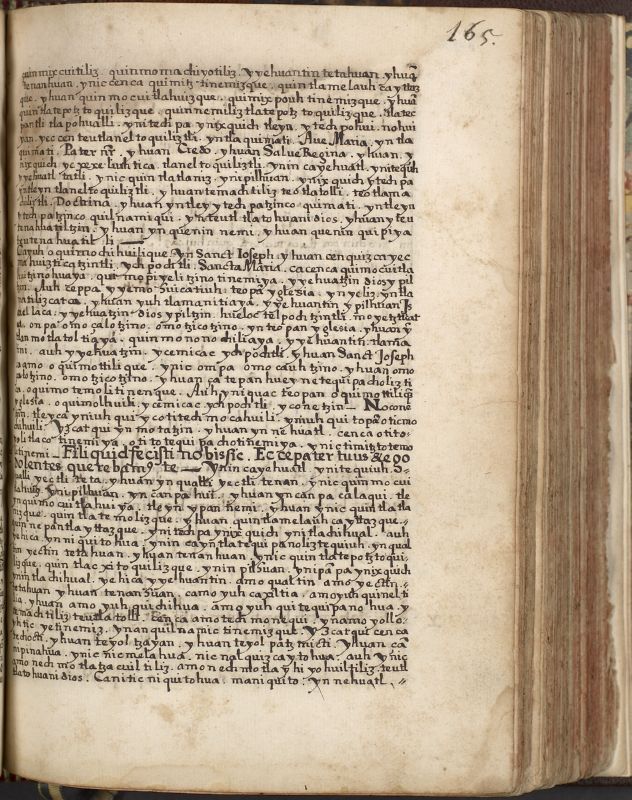 165.
quin mix cuitiliz. quinmo ma chiyotiliz. yyehuantin tetahuan. yhuā
tenanhuan. ynic cenca quimitz tinemizque. quin tlamelauh ca yttaz
que. yhuan quinmo cuitlahuizque. quimix pouh tinemizque. yhuā
quin tlatepotz toquilizque. quinnemiliz tlatepotz toquilizque.
pantli tlapohualli. ynitech pa ynixquich tleyn. ytech pohui.
yan. yec cen teutlanel toquiliztli. yntlaquimati. Aue Maria. yn tla
quimati. Pater nr̃. yhuan Credo. yhuan Salue Regina. yhuan. y
nixquich tlanel toquiliztli. ynin cayehuatl. ynitequiuh
yyehuatl tatli. ynic quin tlatlaniz. ynipilhuan. ynix quich ytech pa
yntleyn tlanel toquiliztli. yhuan temachtiliz teotlatolli. teotlama
chiliztli. Doctrina. yhuan yntley ytech pa tzinco quimati. yntleyn
ytech pa tzinco quilnamiqui. yn teutl tlatohuani dios. yhuan y teu
tenahuatiltzin. yhuan yn quenin nemi. yhuan quenin quipiya
teutenahuatilli —
Cayuh oquimochihuilique yn Sanct Joseph. yhuan cenquizca yec
mahuizticatzintli. ych pochtli. Sancta Maria. ca cenca quimocuitla
huitzino huaya. quimopiyelitzino tinemiya. yyehuatzin dios ypil
tzin. Auh
natilizcatca. yhuan yuh tlamanitiaya. yyehuantin ypilhuan Is
rael laca. yyehuatzin dios ypiltzin. huel oc telpochtzintli.
onpa omo calotzino. omo tzicotzino. yn teopan yglesia. yhuan
auh yyehuatzin. ycemicac ych pochtli. yhuan Sanct Joseph
aamo oquimottilique. ynic ompa omo cauhtzino. yhuan omo
calotzino. omo tzicotzino. yhuan ca tepan huey netequipacholiztica
oquimotemolitinenque. Auh yniquac teopan oquimottilique
yglesia. oquimolhuili. ycemicac ych pochtli yconetzin — Nocone
tzin. tleyca yniuhqui ycotitechmocahuili. ynuh qui topan oticmo
chihuili. yzcatqui ynmotatzin. yhuan ynnehuatl. cenca otito
tinemiya. otitotequipachotinemiya. ynic timitztotemo
litinemi — Fili quid fecisti nobis sic. Ecce pater tuus & ego
dolentes querebam9 te — ynin cayehuatl. ynitequiuh.
yectli teta. yhuan yn qualli yectli tenan. ynic quinmocui
tlahuiz. ynipilhuan. yn canpa huih. yhuan yn canpa calaqui. tle
ynquimo cuitlahuiya. tleyn ypan nemi. yhuan ynic quin tlatla
nizque. quin tlatemolizque. yhuan. quintlamelauh cayttazque.
quin nepantla yttazque. ynitechpa ynixquich ynitlachihual. auh
yehica. yn niquitohua. ynin cayntlatequipanoliz tequiuh. ynqual
tin yectin tetahuan. yhuan tenanhuan. ynic quin tlatepotztoqui
lizque. quin tlacxitoquilizque. ynin pilhuan. ynipan pa ynixquich
ynin tlachihual. yehica yyehuantin. amo qualtin amo yectin.
tetahuan yhuan tenanhuan. camo yuh caxiltia. amo yuh quineltil
ia. yhuan amo yuh quichihua. amo yuh quitequipanohua. y
temachtiliz teutlatolli. cenca amo tech monequi. ynamo yollo
yhtic yetinemiz. ynan quilnamictinemizque. yzcatqui cenca
techocti. yhuan teyol tzayan. yhuan teyol patzmicti. yhuan ca
nipinahua. ynic nicmelahua. nicnalquizcaytohua. auh ynic
amo nechmotlatzacuiltiliz. amo nechmotlayhiyohuiltiliz. teutl
tlatohuani dios. Canitic niquitohua. maniquito. yn nehuatl.